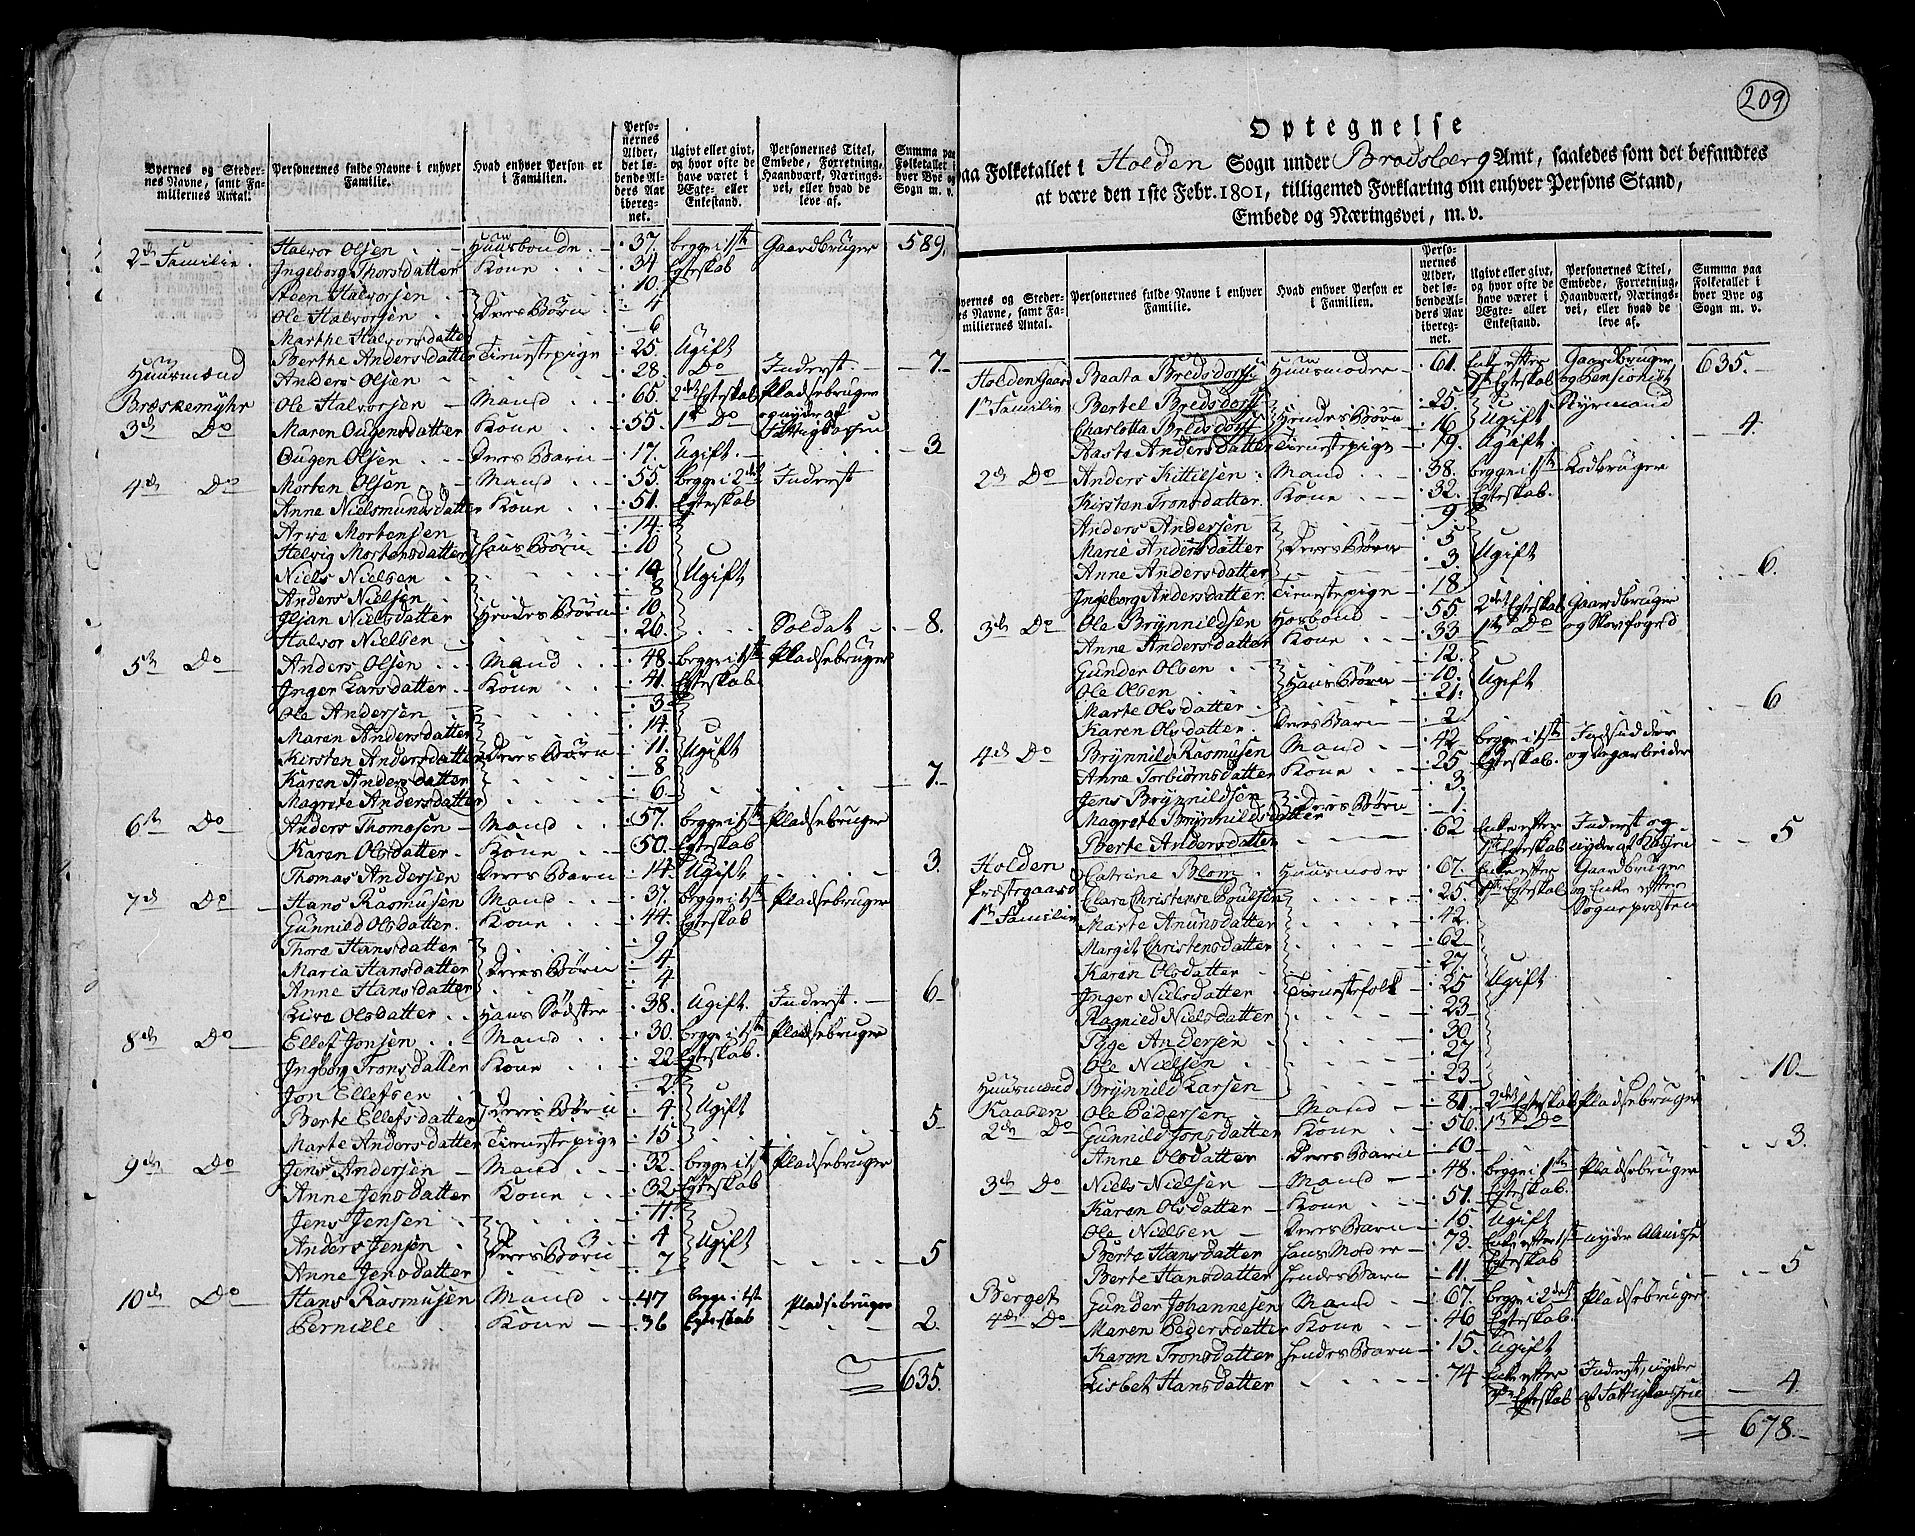 Byernes og Steder-
nes Navne, samt Fa-
miliernes Antal.
Personernes fulde Navne i enhver
Familie.
Hvad enhver Person er
i Familien.
Perso-
nernes
Alder,
det lø-
bende Al-
ders Aar
ibereg-
net.
Ugivt eller givt,
og hvor ofte de
have været i
Ægte- eller
Enkestand.
Personernes Titel,
Embede, Forretning,
Haandværk, Nærings-
vei, eller hvad de
leve af.
Summa paa
Folketallet i
hver Bye og
Sogn m. v.
2de Familie. Halvor Olsen Huusbonde 37. begge i 1ste Gaardbruger 589.
Ingeborg Thorsdatter Kone 34 Egteskab
Steen Halvorsen 10.
Ole Halvorsen Deres Børn 4
Marthe Halvorsdatter 6
Berthe Andersdatter Tienestepige 25. Ugift
Huusmænd Anders Olsen 28. Do Inderst 7.
Bræskemyhr Ole Halvorsen Mand 65. 2det Egteskab Pladsebruger
3de Do Maren Ougensdatter Kone 55. 1te Do og nyder af Fattigkassen
Ougen Olsen Deres Barn 17. Ugift 3
4de Do Morten Olsen Mand 55. begge i 2det Inderst
Anne Nielsmundsdatter Kone 51. Egteskab
Arve Mortensen 14.
Helvig Mortensdatter hans Børn 10
Niels Nielsen 14
Anders Nielsen 8 Ugift
Iljan Nielsdatter Hendes Børn 10.
Halvor Nielsen 26. Soldat 8.
5te Do Anders Olsen Mand 48. begge i 1ste Pladsebruger
Inger Larsdatter Kone 41. Egteskab
Ole Andersen 3
Maren Andersdatter 14.
Kirsten Andersdatter Deres Børn 11. Ugift
Karen Andersdatter 8
Magrete Andersdatter 6 7.
6te Do Anders Thomasen Mand 57. begge i 1ste Pladsebruger
Karen Olsdatter Kone 50. Egteskab
Thomas Andersen Deres Barn 14 Ugift 3.
7de Do Hans Rasmusen Mand 37. begge i 1ste Pladsebruger
Gunnild Olsdatter Kone 44. Egteskab
Thora Hansdatter 9
Maria Hansdatter Deres Børn 4
Anne Hansdatter 4
Live Olsdatter Hans Sødster 38. Ugift Inderst 6
8de Do Ellef Jonsen Mand 30. begge i 1ste Pladsebruger
Ingborg Tronsdatter Kone 22 Egteskab.
Jon Ellefsen 2
Berte Ellefsdatter Deres Børn 4 Ugift
Marte Andersdatter Tienestepige 15 5
9de Do Jens Andersen Mand 32. begge i 1st Pladsebruger
Anne Jensdatter Kone 32 Egteskab
Jens Jensen 11
Anders Jensen Deres Børn 4 Ugift
Anne Jensdatter 7 5
10de Do Hans Rasmusen Mand 47 begge i 1st Pladsebruger
Pernille Kone 36 Egteskab 2.
635.
209
Optegnelse
paa Folketallet i Holden Sogn under Bradsberg Amt, saaledes som det befandtes
at være den 1ste Febr. 1801, tilligemed Forklaring om enhver Persons Stand,
Embede og Næringsvei, m. v.
Byernes og Steder-
nes Navne, samt Fa-
miliernes Antal.
Personernes fulde Navne i enhver
Familie.
Hvad enhver Person er
i Familien.
Perso-
nernes
Alder,
det lø-
bende Al-
ders Aar
ibereg-
net.
Ugivt eller givt,
og hvor ofte de
have været i
Ægte- eller
Enkestand.
Personernes Titel,
Embede, Forretning,
Haandværk, Nærings-
vei, eller hvad de
leve af.
Summa paa
Folketallet i
hver Bye og
Sogn m. v.
Holden Gaard Beata Bredsdorff Huusmoder 61. Enke efter 1st Egteskab Gaardbruger og Pensionist 635.
1te Familie Bertel Bredsdorff 25. Styrmand
Charlotta Bredsdorff Hendes Børn 16 Ugift
Aaste Andersdatter Tienestepige 19. Ugift 4.
2de Do Anders Kittilsen Mand 38. begge i 1ste Lodbruger
Kirsten Tronsdatter Kone 32. Egteskab.
Anders Andersen 9.
Marie Andersdatter Deres Børn 5
Anne Andersdatter 3. Ugift
Ingeborg Andersdatter Tienestepige 18 6.
3de Do Ole Brynnildsen Hosbond 55 2det Egteskab Gaardbruger
Anne Andersdatter Kone 33. 1te Do og Skovfoged
Gunder Olsen 12.
Ole Olsen Hans Børn 10. Ugift
Marte Olsdatter 21.
Karen Olsdatter Deres Barn 2 6
4de Do Brynnild Rasmusen Mand 42 begge i 1ste Indsidder
Anne Torbiørnsdatter Kone 25 Egteskab. og Dagarbeider
Jens Brynnildsen 3.
Magrete Brynnildsdatter Deres Børn 1.
Berte Andersdatter 62 Enke efter 1st Egteskab Inderst og nyder af Kassen 5
Holden Catrine Blom Huusmoder 67. Enke efter Gaardbruger
Præstegaard Clare Christense Poulsen 25. 1st Egteskab og Enke efter
1te Familie Marte Anunsdatter 42. Sognepræsten
Margit Christensdatter 62
Karen Olsdatter 27.
Inger Nielsdatter Tienestefolk 25 Ugift
Ragnild Nielsdatter 23
Tyge Andersen 30
Ole Nielsen 27
Huusmænd Brynnild Larsen 23 10.
Kaasen Ole Pedersen Mand 81. 2det Egteskab Pladsebruger
2de Do Gunnild Jonsdatter Kone 56. 1st Do
Anne Olsdatter Deres Barn 10 3.
3de Do Niels Nielsen Mand 48. begge i 1ste Pladsebruger
Karen Olsdatter Kone 51. Egteskab.
Ole Nielsen Deres Barn 15. Ugift
Berta Hansdatter Hans Moder 73. Enke efter 1ste Egteskab nyder Almisse
Berte Hansdatter Hendes Barn 11. 5
Berget Gunder Johannesen Mand 67. begge i 2det Pladsebruger
4de Do Maren Pedersdatter Kone 46 Egteskab.
Karen Tronsdatter Hendes Barn 15. Ugift
Lisbet Hansdatter 74 Enke efter 1ste Egteskab Inderst, nyder af Fattigkassen 4.
678.